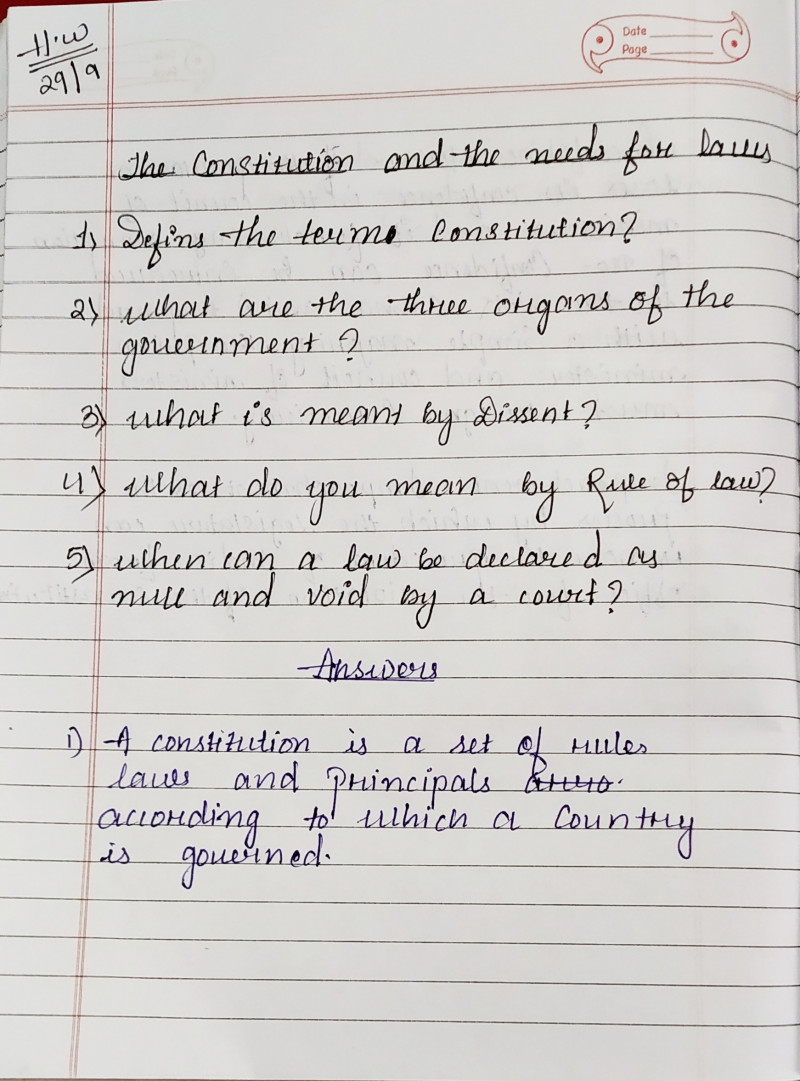 H.W
29/9
Date
Page
The Constitution and the needs for Laws
1) Defins the term Constitution?
2) what are the three organs of the
government?
3) what is meant by Dissent?
4) what do you mean by Rule of law?
5) when can a law be declared as
null and void by a court?
Answers
1) A constitution is a set of rules
laws and principals
according to which a Country
is governed.